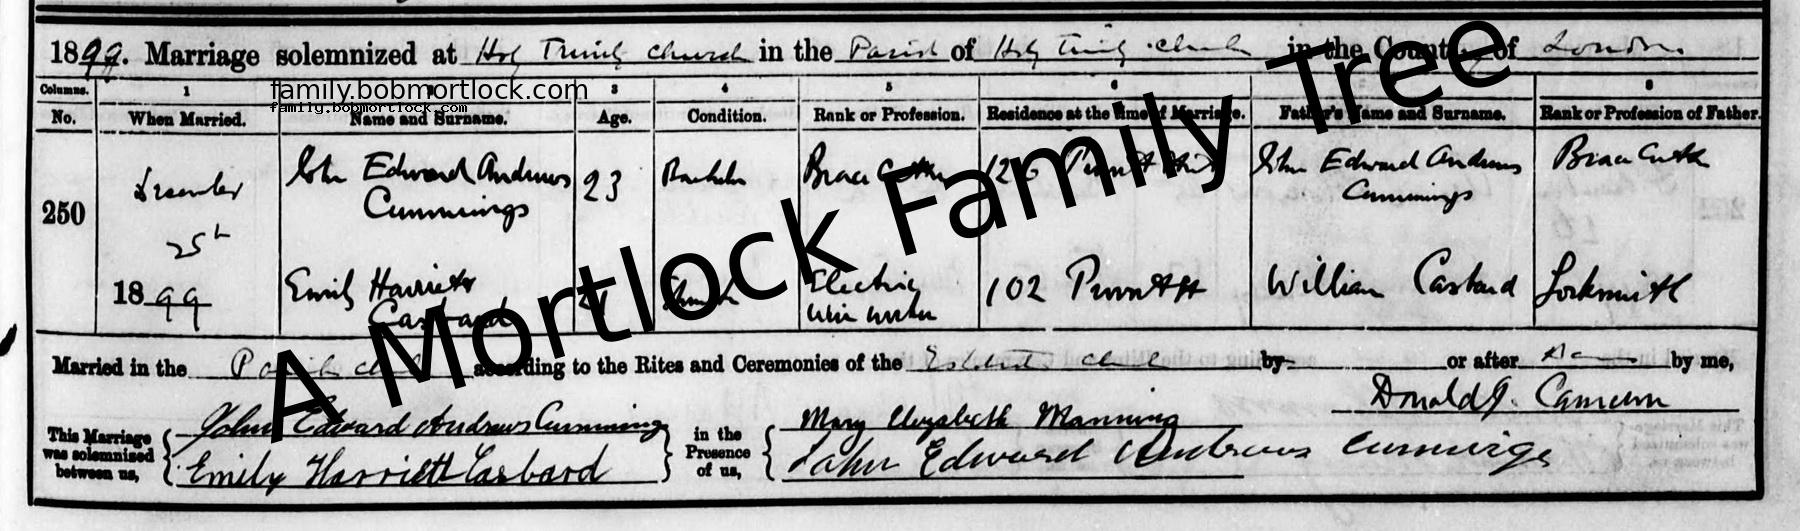 1899. Marriage solemnized at Holy Trinity Church in the Parish of Holy Trinity Church in the County of London
Columns. 1 2 3 4 5 6 7 8
family.bobmortlock.com
family.bobmortlock.com
No. When Married. Name and Surname. Age. Condition. Rank or Profession. Residence at the time of Marriage. Father's Name and Surname. Rank or Profession of Father.
250
December 25th 1899
John Edward Andrews Cummings
23 Bachelor Brace Cutter
John Edward Andrews Cummings
Brace Cutter
Emily Harriett Casbard
21
Electric Wire worker
102
William Casbard
Locksmith
Married in the Parish Church according to the Rites and Ceremonies of the Established Church by or after Banns by me,
Donald J. Cameron
This Marriage was solemnized between us,
John Edward Andrews Cummings
Emily Harriett Casbard
in the Presence of us,
Mary Elizabeth Manning
John Edward Andrews Cummings
A Mortlock Family Tree